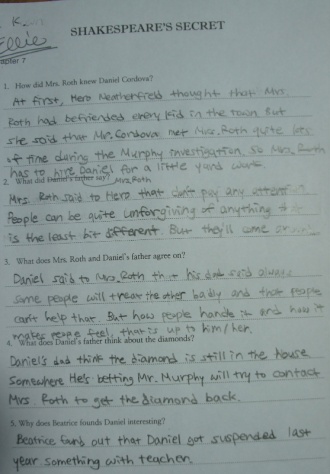 K.
Ellie
SHAKESPEARE'S SECRET
Chapter 7
1. How did Mrs. Roth knew Daniel Cordova?
At first, Hero Neatherfield thought that Mrs.
Roth had befriended every kid in the town. But
she said that Mr. Cordova met Mrs. Roth quite lots
of time during the Murphy investigation. So Mrs. Roth
has to hire Daniel for a little yard work.
2. What did Daniel's father say? Mrs. Roth
Mrs. Roth said to Hero that don't pay any
People can be quite unforgiving of anything
is the least bit different. But they'll come
3. What does Mrs. Roth and Daniel's father agree on?
Daniel said to Mrs. Roth that his dad said always
some people will treat the other badly and that people
can't help that. But how people handle it and how it
makes people feel, that is up to him/her.
4. What does Daniel's father think about the diamonds?
Daniel's dad think the diamond is still in the house
somewhere. He's betting Mr. Murphy will try to contact
Mrs. Roth to get the diamond back.
5. Why does Beatrice founds Daniel interesting?
Beatrice found out that Daniel got suspended last
year something with teacher.